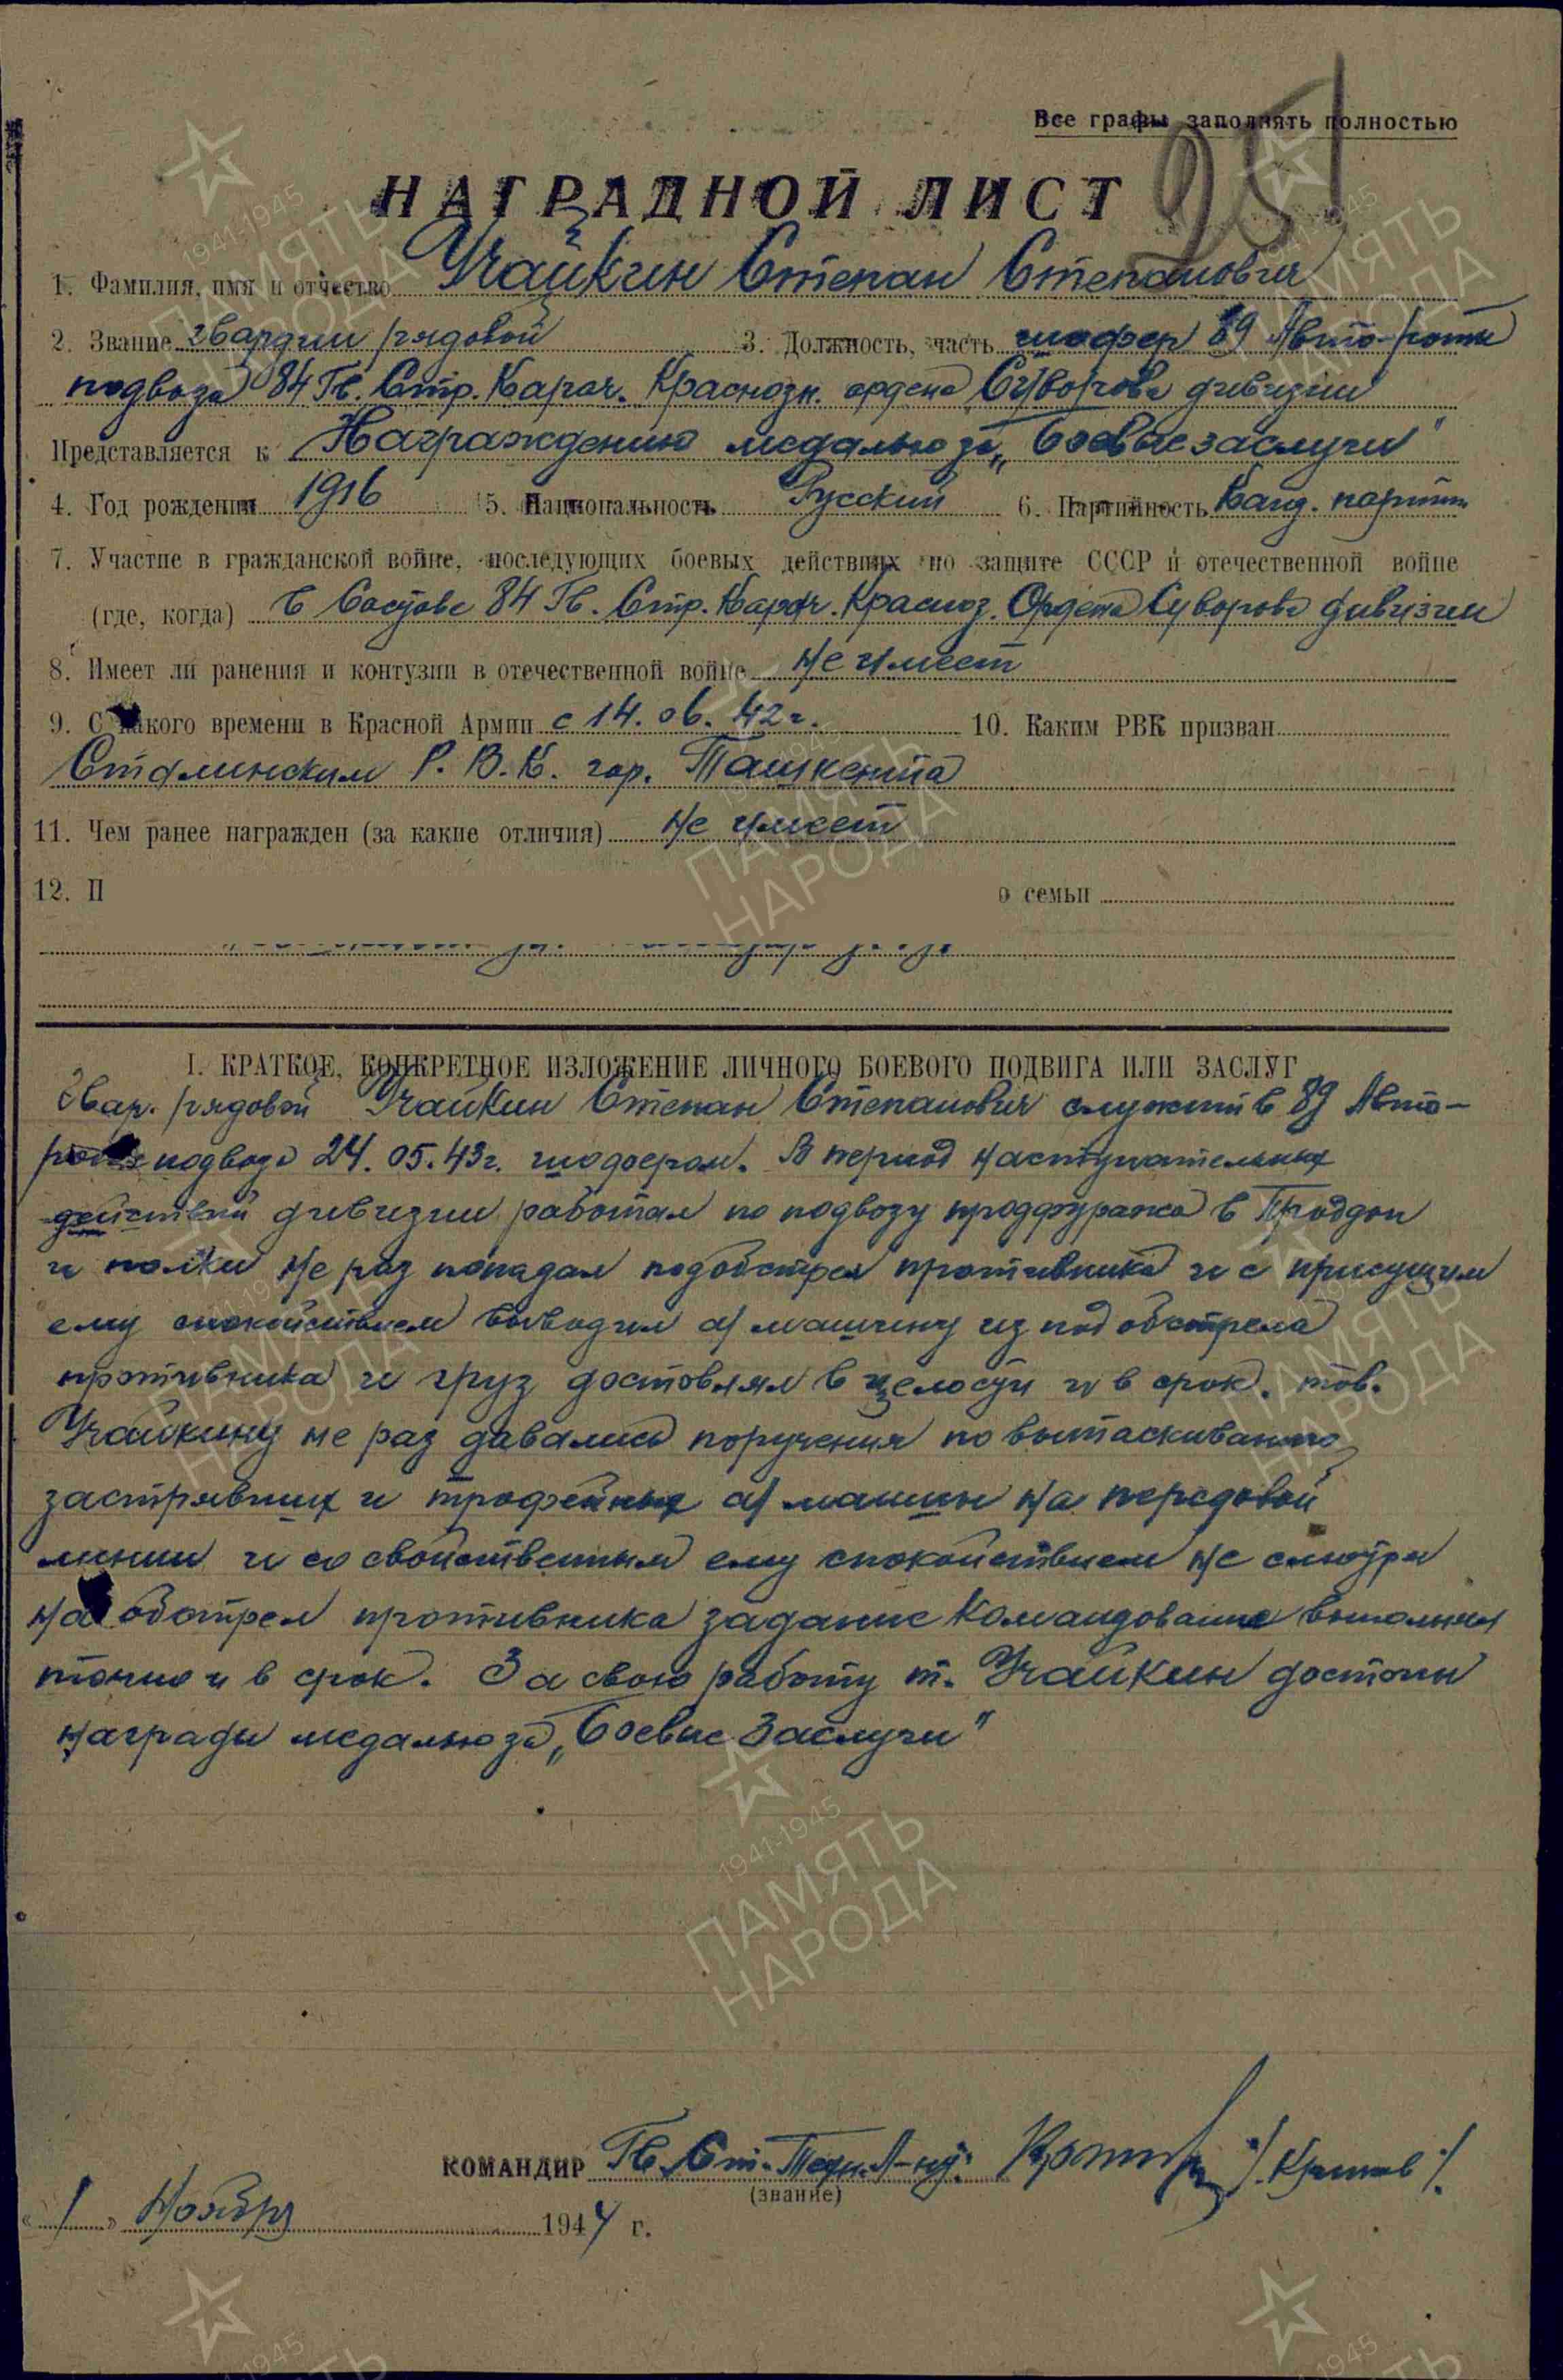 Все графы заполнять полностью
251
НАГРАДНОЙ ЛИСТ
1. Фамилия, имя и отчество Учайкин Степан Степанович
2. Звание гвардии рядовой 3. Должность, часть шофер 89 Авто-роты
подвоза 84 Гв. Стр. Карач. Краснозн. ордена Суворова дивизии
Представляется к Награждению медалью за „Боевые заслуги"
4. Год рождения 1916 5. Национальность Русский 6. Партийность Канд. партии
7. Участие в гражданской войне, последующих боевых действиях по защите СССР и отечественной войне
(где, когда) В Составе 84 Гв. Стр. Карач. Красноз. Ордена Суворова дивизии
8. Имеет ли ранения и контузии в отечественной войне не имеет
9. С какого времени в Красной Армии с 14. 06. 42 г. 10. Каким РВК призван
Сталинским Р. В. К. гор. Ташкента
11. Чем ранее награжден (за какие отличия) не имеет
12. П о семьи
I. КРАТКОЕ, КОНКРЕТНОЕ ИЗЛОЖЕНИЕ ЛИЧНОГО БОЕВОГО ПОДВИГА ИЛИ ЗАСЛУГ
Гвар. рядовой Учайкин Степан Степанович служит в 89 Авто-
роте подвоза 24. 05. 43 г. шофером. В период наступательных
действий дивизии работал по подвозу продфуража в
и полки не раз попадал подобстрел противника и с присущим
ему спокойствием выводил а/машину из под обстрела
противника и груз доставлял в целости и в срок. тов.
Учайкину не раз давались поручения по вытаскиванию
застрявших и трофейных а/машин на передовой
линии и со свойственным ему спокойствием не смотря
на обстрел противника задание командования выполнял
точно и в срок. За свою работу т. Учайкин достоин
награды медалью за „Боевые Заслуги"
КОМАНДИР Гв. Ст. Техн. Л-нт:
(звание)
« 1 » Ноября 1944 г.
1941-1945
ПАМЯТЬ
НАРОДА